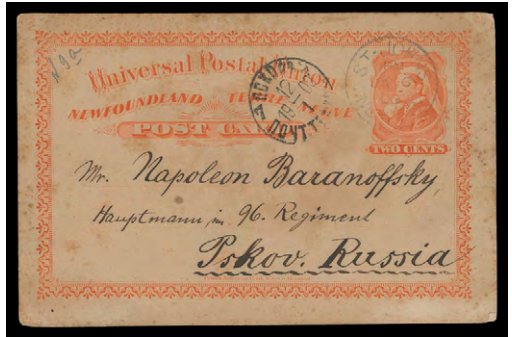 Nga
Universal Postal Union
NEWFOUNDLAND TERRE NEUVE
POST CARD
TWO CENTS
Mr. Napoleon Baranoffsky,
Hauptmann in 96. Regiment
Pskov. Russia